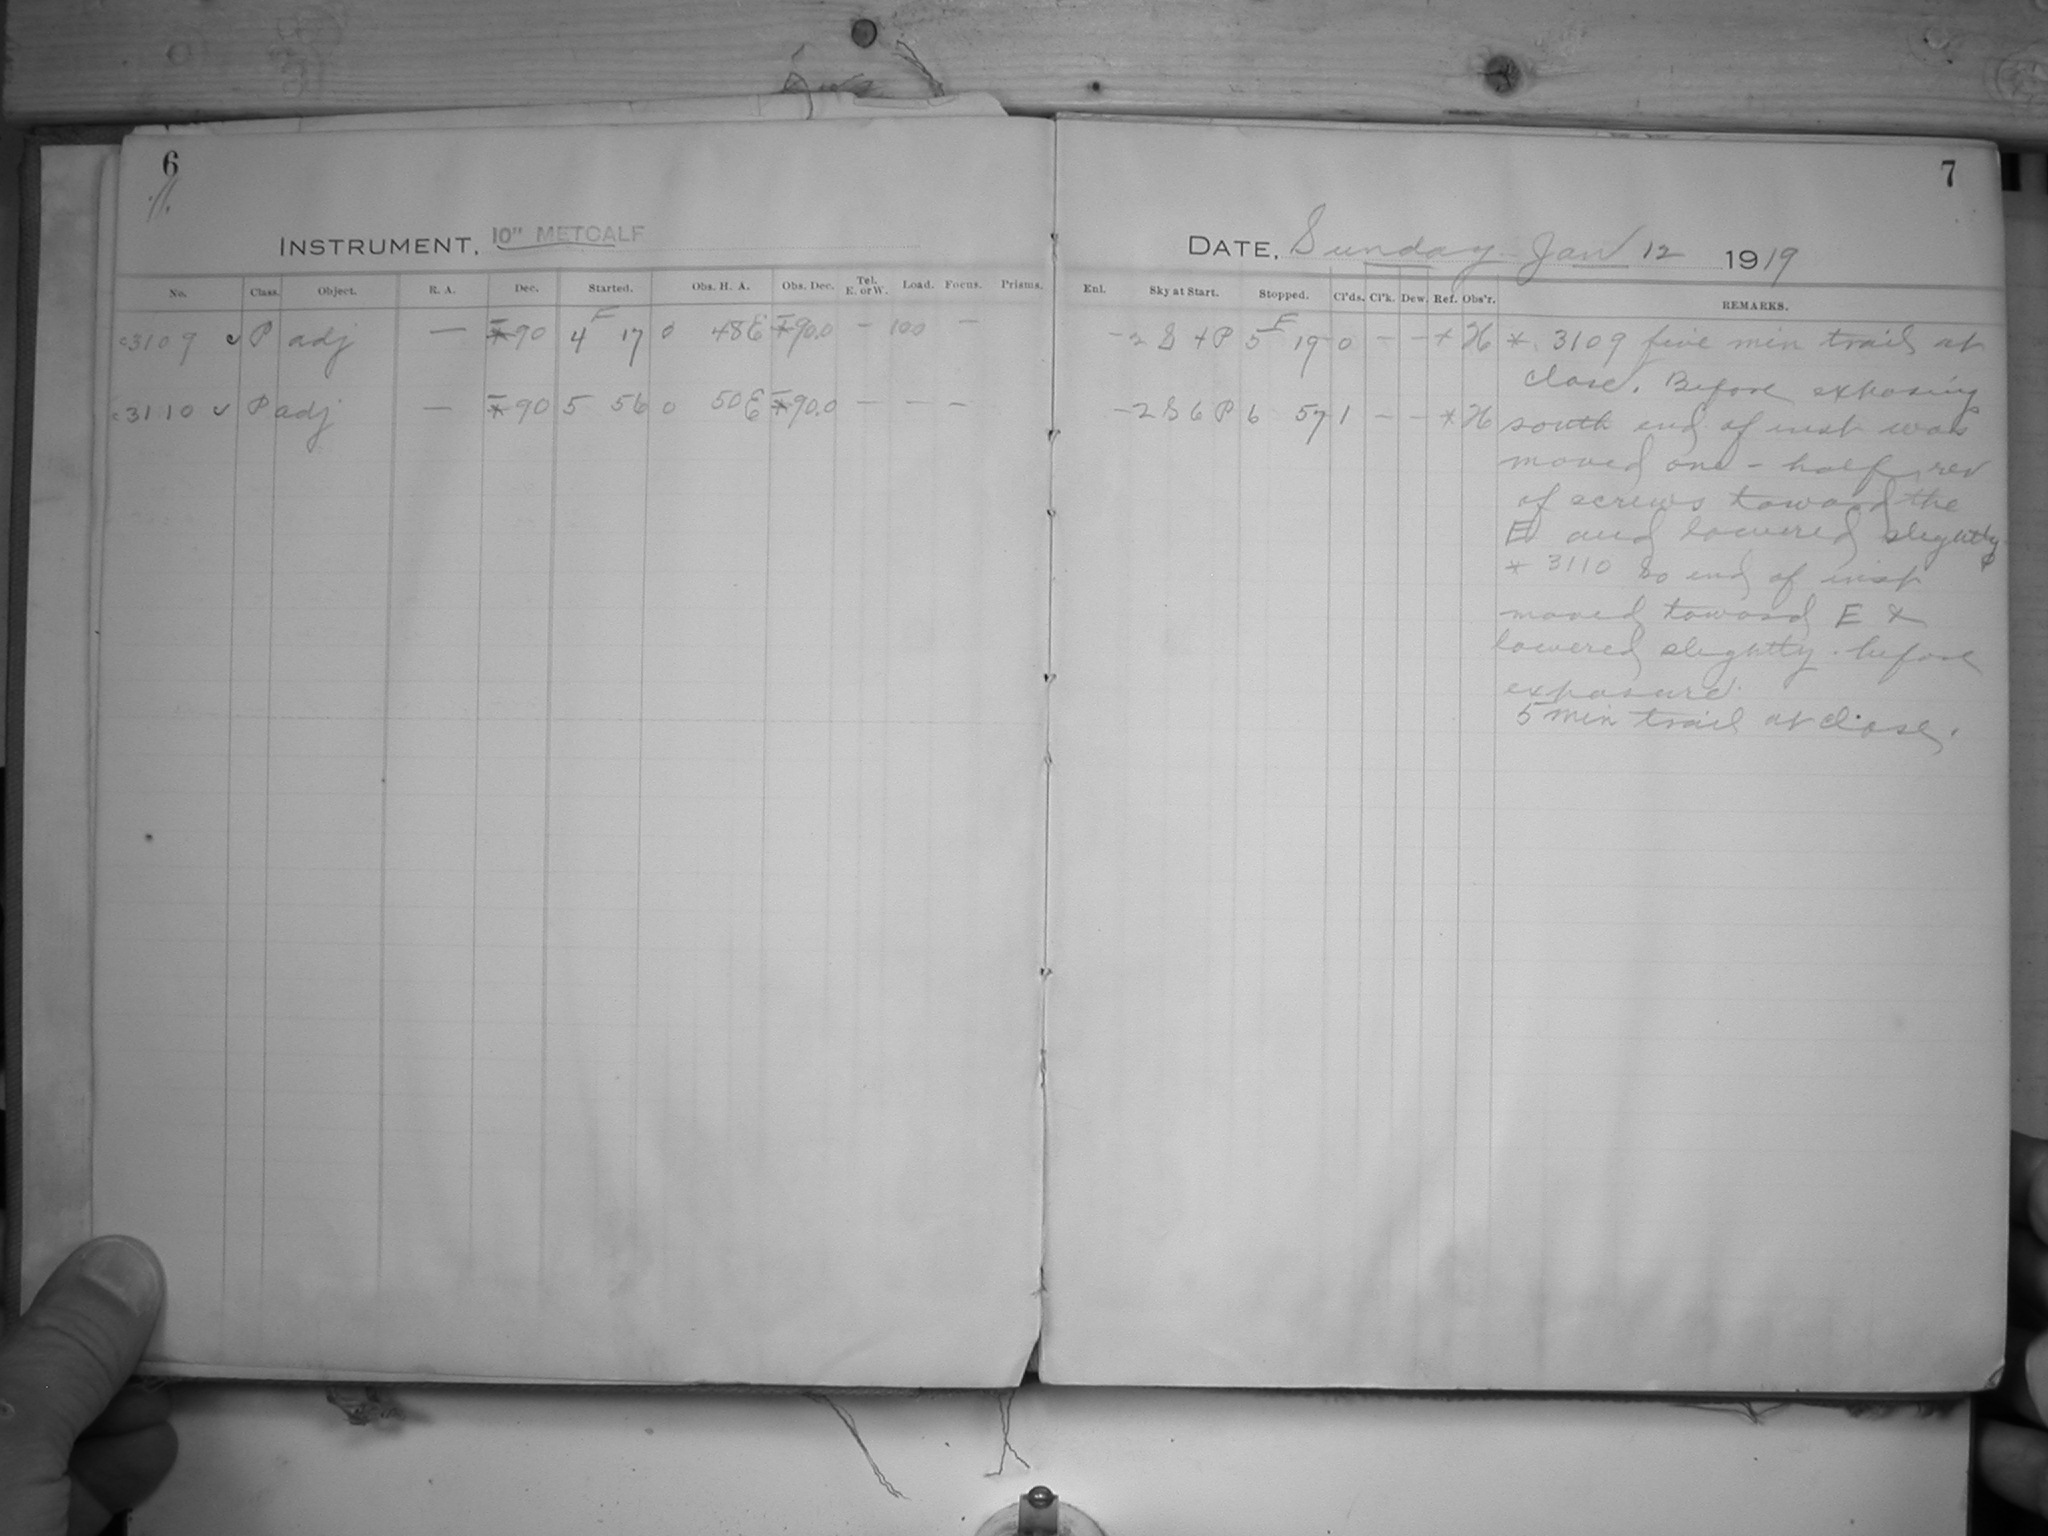 6
7
INSTRUMENT, 10" METCALF
DATE, Sunday Jan 12 1919
No. Class. Object. R. A. Dec. Started. Obs. H. A. Obs. Dec. Tel. E. or W. Load. Focus. Prisms.
Enl. Sky at Start. Stopped. Cl'ds. Cl'k. Dew. Ref. Obs'r. REMARKS.
c3109 P adj — 90 4 17 0 48 E 90.0 — 100 —
—2 S 4 P 5 19 0 — — * H
c3110 P adj — 90 5 56 0 50 E 90.0 — — —
—2 S 6 P 6 57 1 — — * H
* 3109 five min trail at
close. Before exposing
south end of inst was
moved one-half rev
of screws toward the
E and lowered slightly
* 3110 So end of inst
moved toward E &
lowered slightly before
exposure.
5 min trail at close.